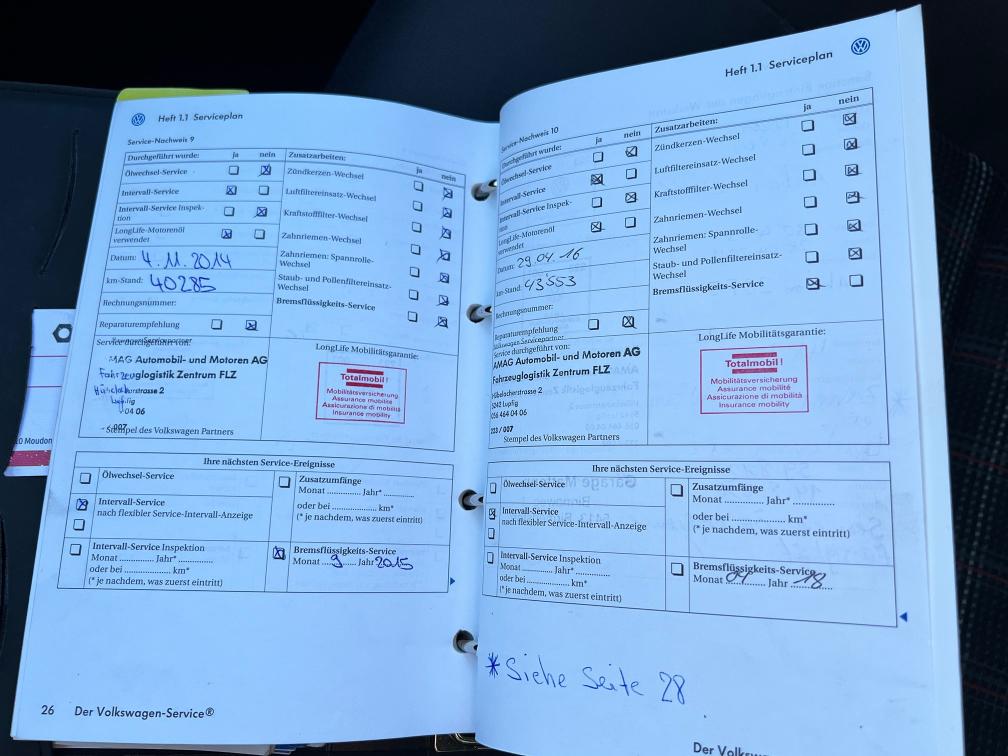 Heft 1.1 Serviceplan
Service-Nachweis 9
Durchgeführt wurde: ja nein
Ölwechsel-Service
Intervall-Service
Intervall-Service Inspek-
tion
LongLife-Motorenöl
verwendet
Datum: 4.11.2014
km-Stand: 40285
Rechnungsnummer:
Reparaturempfehlung
Zusatzarbeiten: ja nein
Zündkerzen-Wechsel
Luftfiltereinsatz-Wechsel
Kraftstofffilter-Wechsel
Zahnriemen-Wechsel
Zahnriemen: Spannrolle-
Wechsel
Staub- und Pollenfiltereinsatz-
Wechsel
Bremsflüssigkeits-Service
Service durchgeführt von:
AMAG Automobil- und Motoren AG
Fahrzeuglogistik Zentrum FLZ
Hübelacherstrasse 2
Lupfig
04 06
007
Stempel des Volkswagen Partners
LongLife Mobilitätsgarantie:
Totalmobil!
Mobilitätsversicherung
Assurance mobilité
Assicurazione di mobilità
Insurance mobility
Ihre nächsten Service-Ereignisse
Ölwechsel-Service
Intervall-Service
nach flexibler Service-Intervall-Anzeige
Intervall-Service Inspektion
Monat ............ Jahr* ............
oder bei .................. km*
(* je nachdem, was zuerst eintritt)
Zusatzumfänge
Monat ............ Jahr* ............
oder bei .................. km*
(* je nachdem, was zuerst eintritt)
Bremsflüssigkeits-Service
Monat 9 Jahr 2015
26 Der Volkswagen-Service®
10 Moudon
Heft 1.1 Serviceplan
Service-Nachweis 10
Durchgeführt wurde: ja nein
Ölwechsel-Service
Intervall-Service
Intervall-Service Inspek-
tion
LongLife-Motorenöl
verwendet
Datum: 29.04.16
km-Stand: 43'553
Rechnungsnummer:
Reparaturempfehlung
Zusatzarbeiten: ja nein
Zündkerzen-Wechsel
Luftfiltereinsatz-Wechsel
Kraftstofffilter-Wechsel
Zahnriemen-Wechsel
Zahnriemen: Spannrolle-
Wechsel
Staub- und Pollenfiltereinsatz-
Wechsel
Bremsflüssigkeits-Service
Volkswagen Servicepartner
Service durchgeführt von:
AMAG Automobil- und Motoren AG
Fahrzeuglogistik Zentrum FLZ
Hübelacherstrasse 2
5242 Lupfig
056 464 04 06
223 / 007
Stempel des Volkswagen Partners
LongLife Mobilitätsgarantie:
Totalmobil!
Mobilitätsversicherung
Assurance mobilité
Assicurazione di mobilità
Insurance mobility
Ihre nächsten Service-Ereignisse
Ölwechsel-Service
Intervall-Service
nach flexibler Service-Intervall-Anzeige
Intervall-Service Inspektion
Monat ............ Jahr* ............
oder bei .................. km*
(* je nachdem, was zuerst eintritt)
Zusatzumfänge
Monat ............ Jahr* ............
oder bei .................. km*
(* je nachdem, was zuerst eintritt)
Bremsflüssigkeits-Service
Monat 04 Jahr 18
* Siehe Seite 28